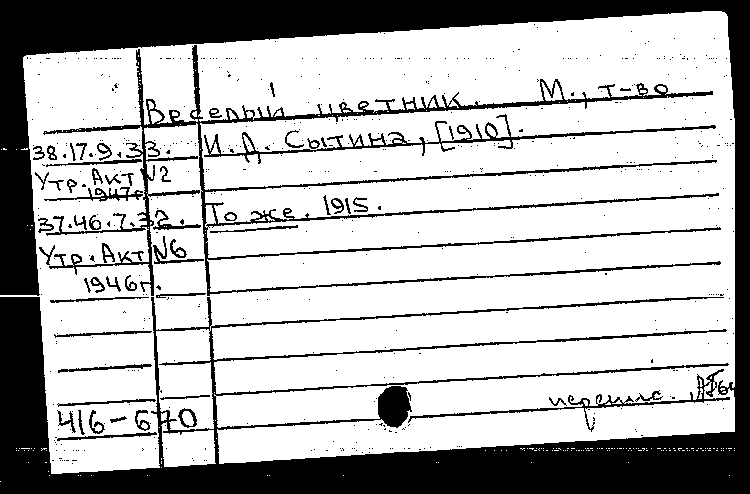 Веселый цветник. М., т-во
38.17.9.33. И. Д. Сытина, [1910].
Утр. Акт N2
1947г.
37.46.7.32. То же. 1915.
Утр. Акт N6
1946г.
416-670